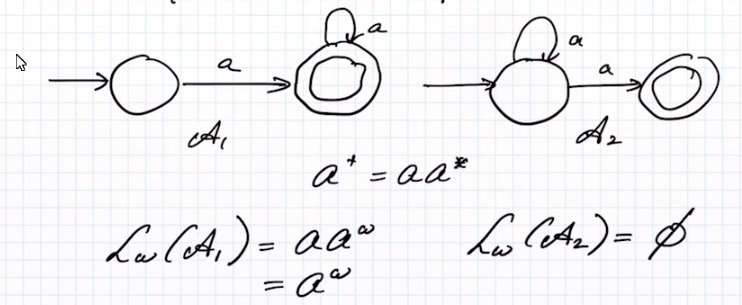 a a
a a
𝒜₁ 𝒜₂
a⁺ = aa*
ℒω(𝒜₁) = aa^ω ℒω(𝒜₂) = ∅
= a^ω